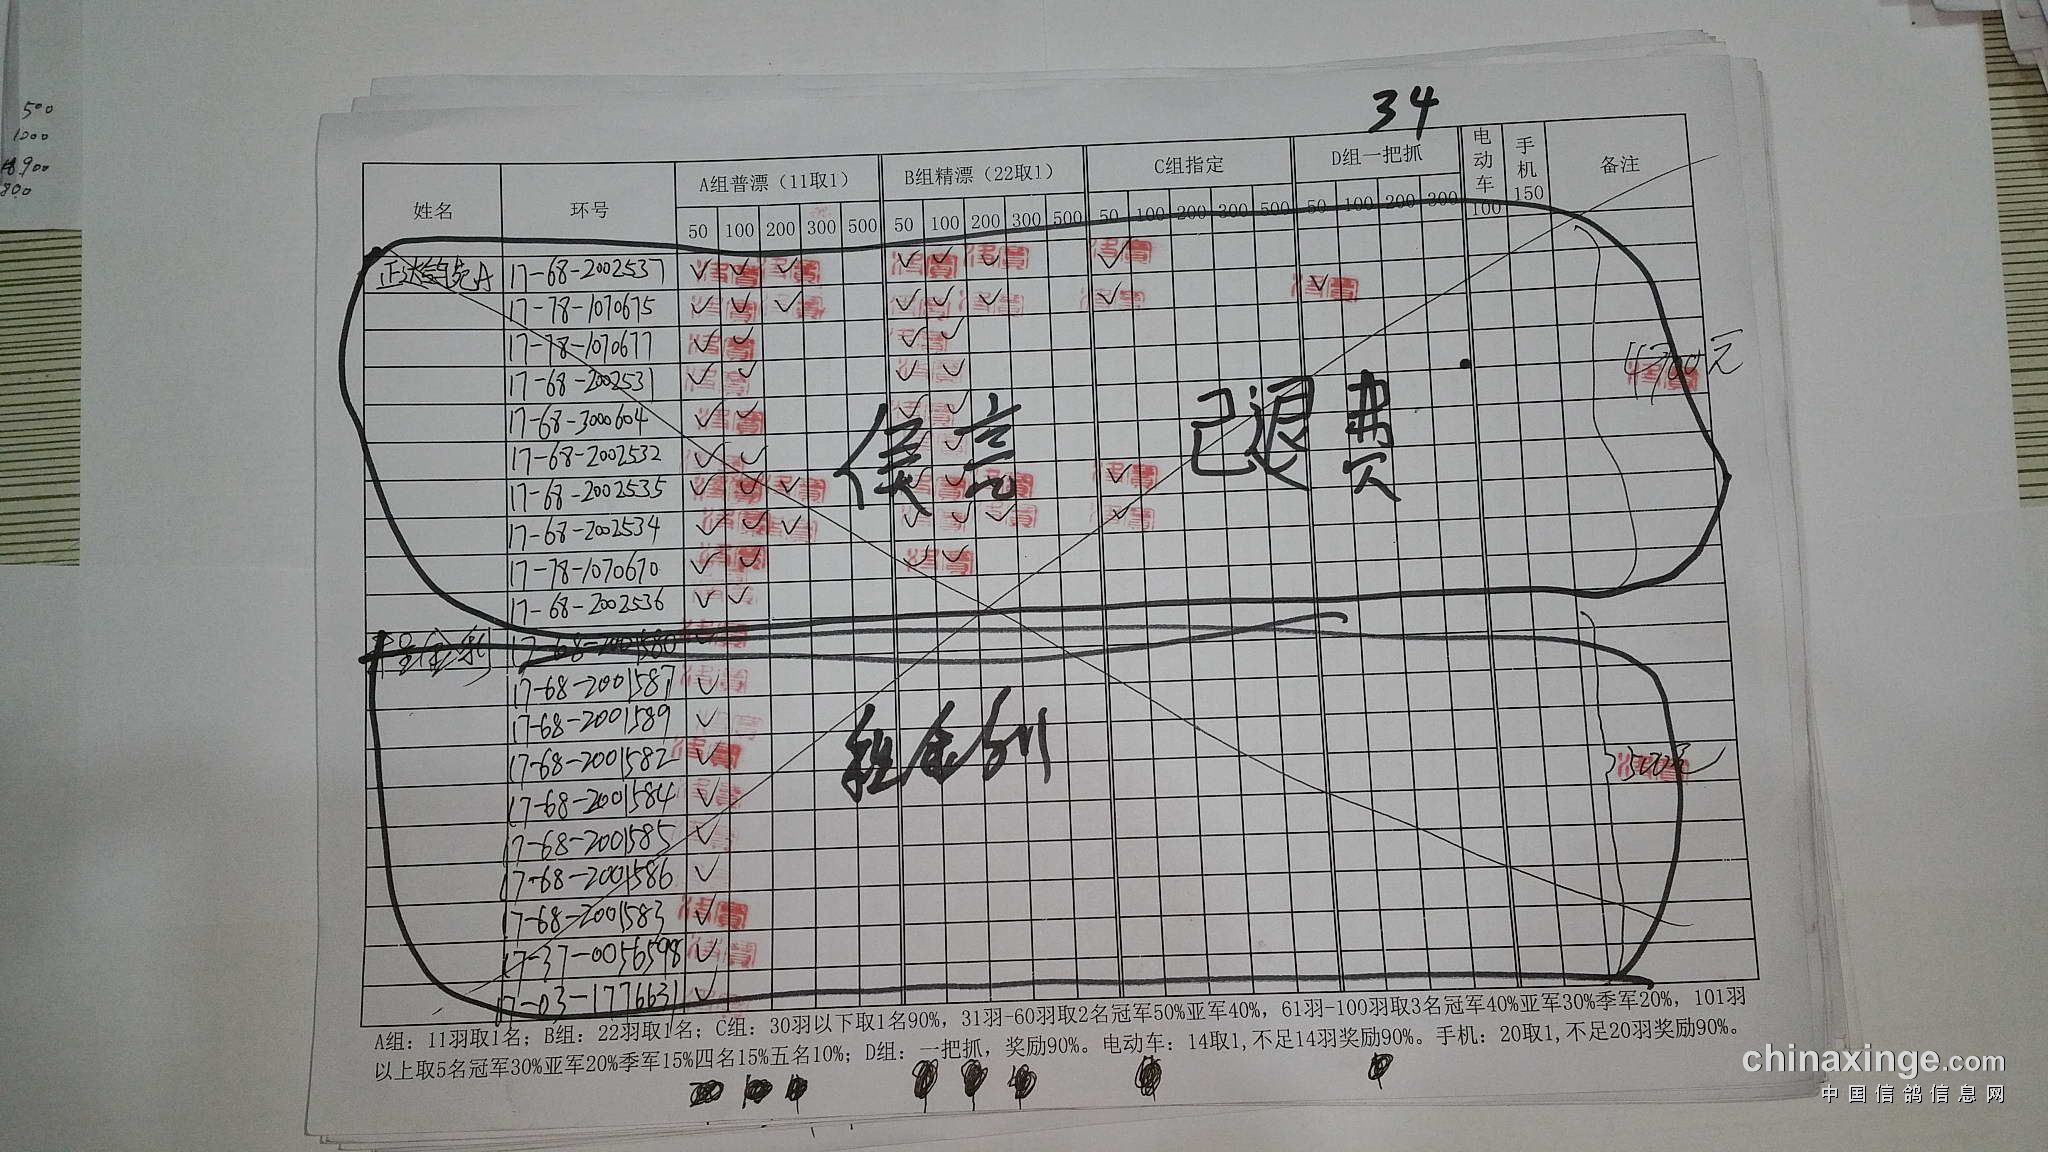 500
1200
800
34
姓名 环号 A组普漂（11取1） B组精漂（22取1） C组指定 D组一把抓 电动车100 手机150 备注
50 100 200 300 500 50 100 200 300 500 50 100 200 300 500 50 100 200 300
17-68-2002537 ✓ ✓ ✓ ✓ ✓ ✓ ✓
17-78-1070675 ✓ ✓ ✓ ✓ ✓ ✓ ✓ ✓
17-78-1070677 ✓ ✓ ✓ ✓
17-68-2002531 ✓ ✓ ✓ ✓
17-68-3000604 ✓ ✓ ✓ ✓
17-68-2002532 ✓ ✓
17-68-2002535 ✓ ✓ ✓ ✓ ✓ ✓ ✓
17-68-2002534 ✓ ✓ ✓ ✓ ✓ ✓ ✓
17-78-1070670 ✓ ✓ ✓ ✓
17-68-2002536 ✓ ✓
已退费
17-68-2001580 ✓
17-68-2001587 ✓
17-68-2001589 ✓
17-68-2001582 ✓
17-68-2001584 ✓
17-68-2001585 ✓
17-68-2001586 ✓
17-68-2001583 ✓
17-37-0056598 ✓
17-03-1776631 ✓
500元
A组：11羽取1名；B组：22羽取1名；C组：30羽以下取1名90%，31羽-60羽取2名冠军50%亚军40%，61羽-100羽取3名冠军40%亚军30%季军20%，101羽
以上取5名冠军30%亚军20%季军15%四名15%五名10%；D组：一把抓，奖励90%。电动车：14取1,不足14羽奖励90%。手机：20取1,不足20羽奖励90%。
chinaxinge.com
中国信鸽信息网